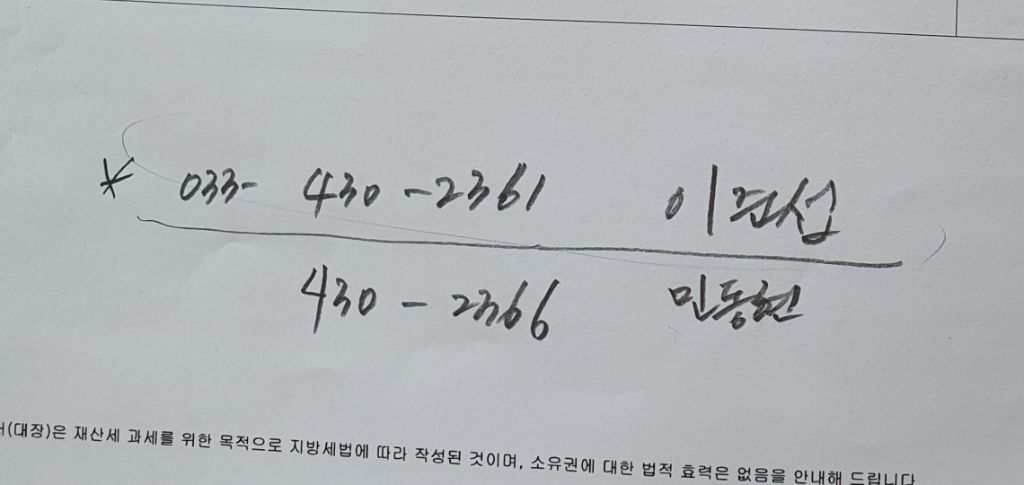 * 033- 430-2361 이준섭
430-2366 민동현
(대장)은 재산세 과세를 위한 목적으로 지방세법에 따라 작성된 것이며, 소유권에 대한 법적 효력은 없음을 안내해 드립니다